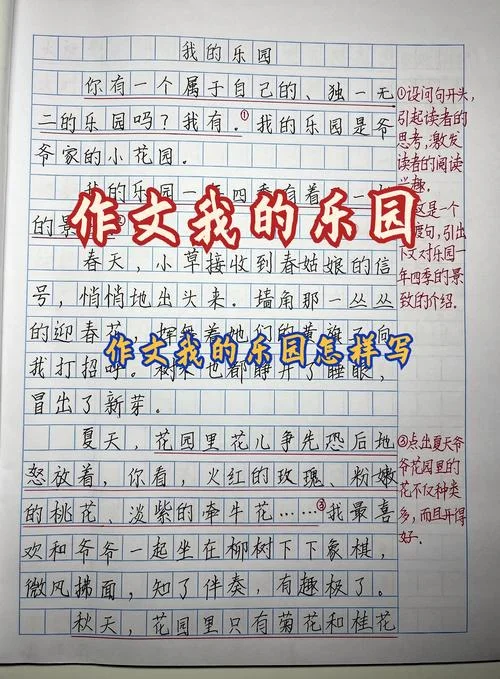 我的乐园
你有一个属于自己的、独一无
二的乐园吗?我有.①我的乐园是爷
爷家的小花园.
的乐园一年四季有着
的景
春天,小草接收到春姑娘的信
号,悄悄地出头来.墙角那一丛丛
的迎春花,挥舞着她们的黄
我打招呼.树木也都睁开了睡眼,
冒出了新芽.
夏天,花园里花儿争先恐后地
怒放着,你看,火红的玫瑰、粉嫩
的桃花、淡紫的牵牛花……③我最喜
欢和爷爷一起坐在柳树下下象棋,
微风拂面,知了伴奏,有趣极了.
秋天,花园里只有菊花和桂花
①设问句开头,
引起读者的
思考,激发
读者的阅读
兴趣.
这是一个
渡句,引出
下文对乐园一
年四季的景
致的介绍.
③点出夏天爷
爷花园里的
花不仅种类
多,而且开得
好.
作文我的乐园
作文我的乐园怎样写